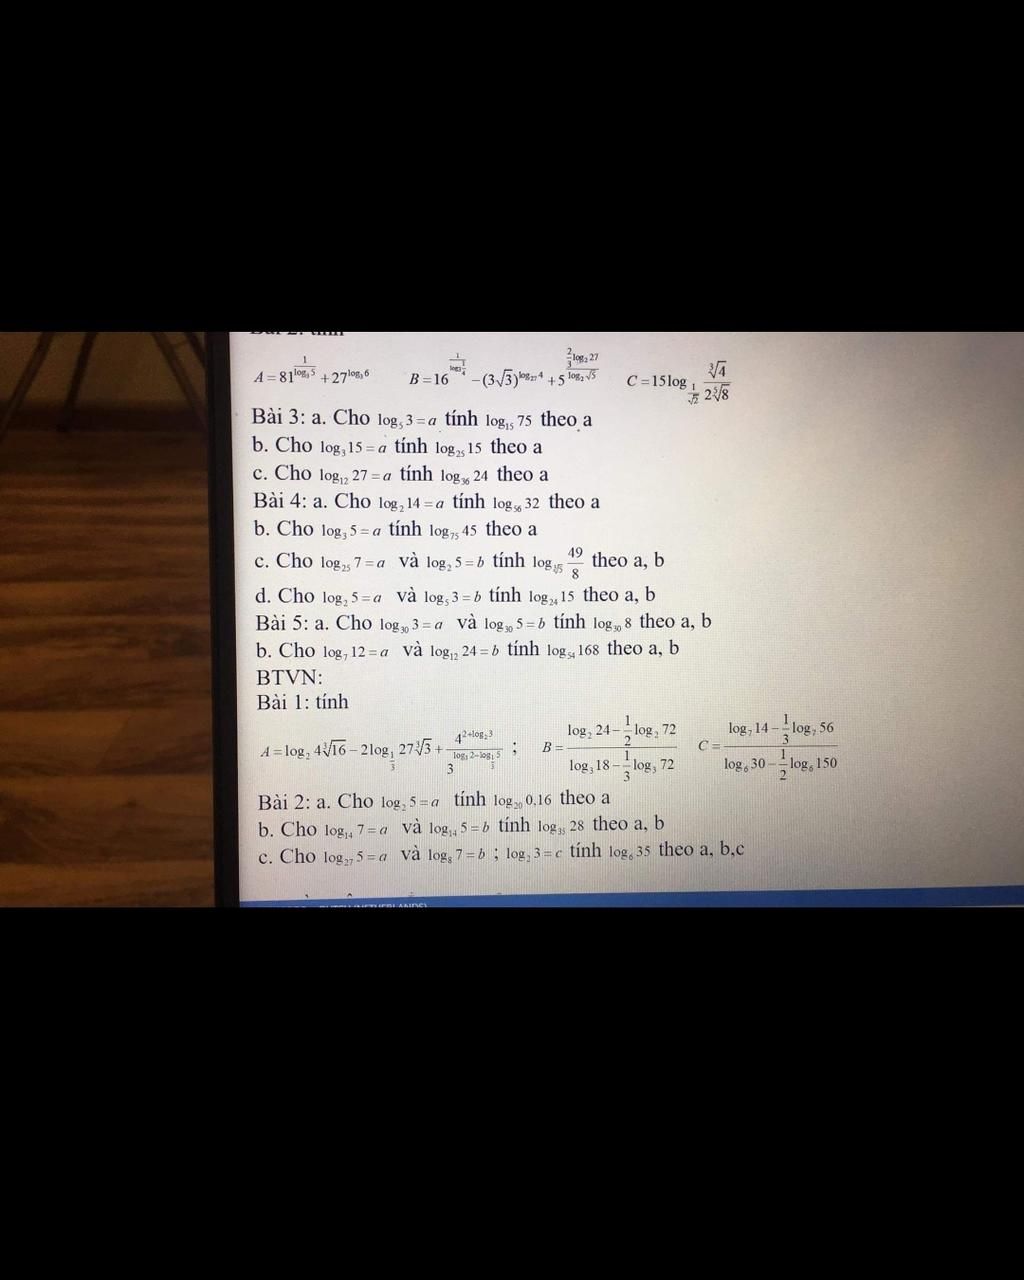 Bài 2: tính
A = 81^{\frac{1}{\log_5 3}} + 27^{\log_3 6} B = 16 − (3√3)^{\log_{27} 4} + 5^{\frac{\frac{2}{3}\log_2 27}{\log_2 √5}} C = 15\log_{\frac{1}{√2}} \frac{∛4}{2\sqrt[5]{8}}
Bài 3: a. Cho log₅ 3 = a tính log₁₅ 75 theo a
b. Cho log₃ 15 = a tính log₂₅ 15 theo a
c. Cho log₁₂ 27 = a tính log₃₆ 24 theo a
Bài 4: a. Cho log₂ 14 = a tính log₅₆ 32 theo a
b. Cho log₃ 5 = a tính log₇₅ 45 theo a
c. Cho log₂₅ 7 = a và log₂ 5 = b tính \log_{∛5} \frac{49}{8} theo a, b
d. Cho log₂ 5 = a và log₅ 3 = b tính log₂₄ 15 theo a, b
Bài 5: a. Cho log₃₀ 3 = a và log₃₀ 5 = b tính log₃₀ 8 theo a, b
b. Cho log₇ 12 = a và log₁₂ 24 = b tính log₅₄ 168 theo a, b
BTVN:
Bài 1: tính
A = log₂ 4∛16 − 2\log_{\frac{1}{3}} 27∛3 + \frac{4^{2+\log_2 3}}{3^{\log_3 2−\log_{\frac{1}{3}} 5}} ; B = \frac{\log_2 24 − \frac{1}{2}\log_2 72}{\log_3 18 − \frac{1}{3}\log_3 72} C = \frac{\log_7 14 − \frac{1}{3}\log_7 56}{\log_6 30 − \frac{1}{2}\log_6 150}
Bài 2: a. Cho log₂ 5 = a tính log₂₀ 0,16 theo a
b. Cho log₁₄ 7 = a và log₁₄ 5 = b tính log₃₅ 28 theo a, b
c. Cho log₂₇ 5 = a và log₈ 7 = b ; log₂ 3 = c tính log₆ 35 theo a, b,c
DUTCH (NETHERLANDS)